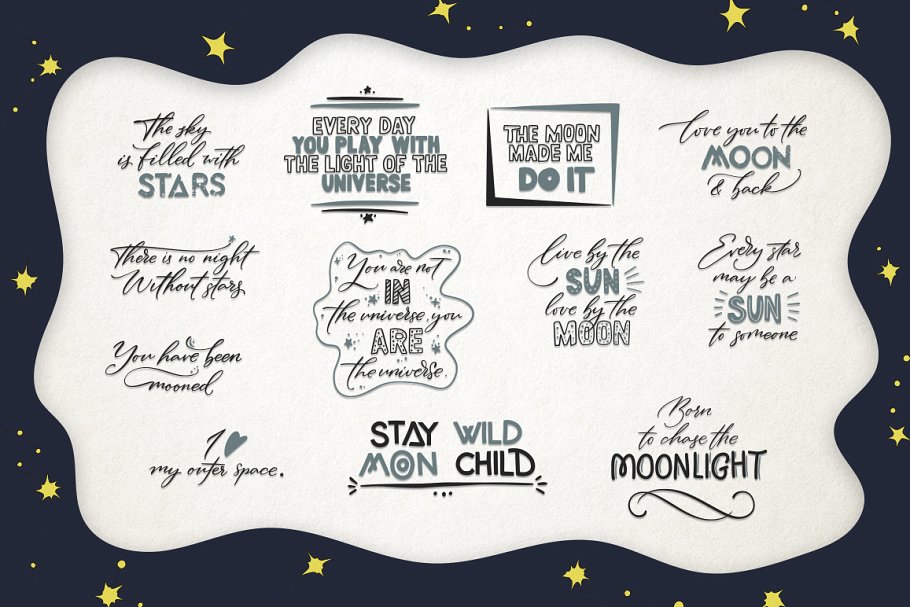 The sky
is filled with
STARS
EVERY DAY
YOU PLAY WITH
THE LIGHT OF THE
UNIVERSE
THE MOON
MADE ME
DO IT
love you to the
MOON
& back
There is no night
Without stars
You are not
IN
the universe, you
ARE
the universe.
live by the
SUN
love by the
MOON
Every star
may be a
SUN
to someone
You have been
mooned
I
my outer space.
STAY WILD
MON CHILD
Born
to chase the
MOONLIGHT